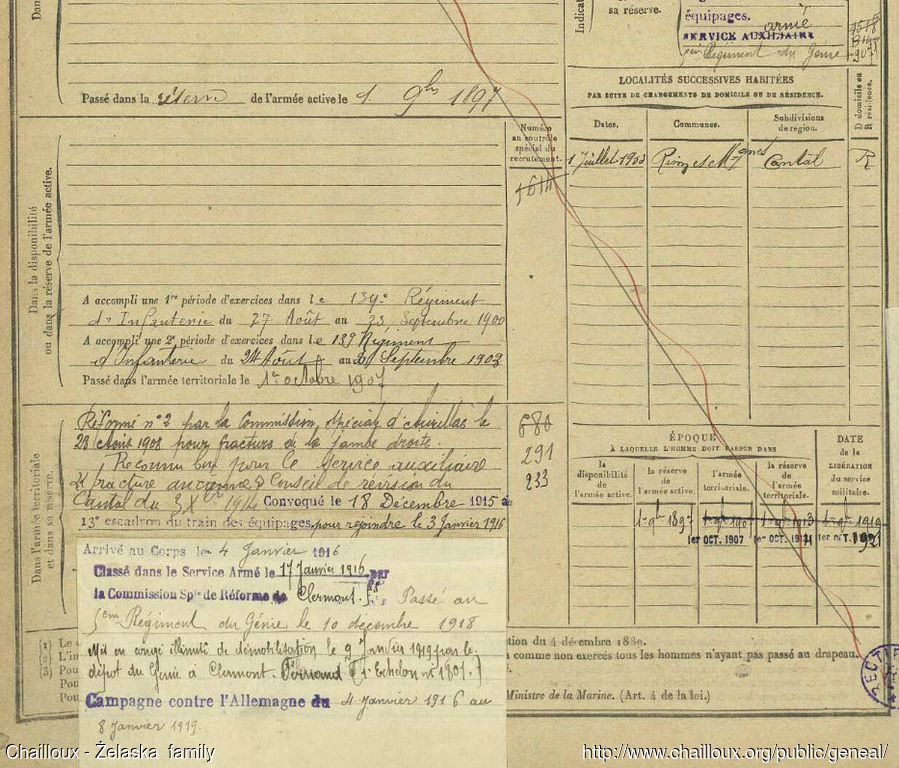 Dans
Passé dans la réserve de l'armée active le 1 9bre 1897
Dans la disponibilité
ou dans la réserve de l'armée active.
Numéro
au contrôle
spécial du
recrutement.
A accompli une 1re période d'exercices dans le 139e Régiment
d'Infanterie du 27 Août au 23 Septembre 1900
A accompli une 2e période d'exercices dans le 139 Régiment
d'Infanterie du 24 Août au Septembre 1903
Passé dans l'armée territoriale le 1er octobre 1907
Dans l'armée territoriale
et dans sa réserve.
Réformé n° 2 par la Commission spéciale d'Aurillac le
28 Août 1908 pour fracture de la jambe droite.
Reconnu bon pour le service auxiliaire
fracture ancienne Conseil de révision du
Cantal du 3 Xbre 1914 Convoqué le 18 Décembre 1915 au
13e escadron du train des équipages pour rejoindre le 3 Janvier 1916
680
291
233
Arrivé au Corps le 4 Janvier 1916
Classé dans le Service Armé le 17 Janvier 1916 par
la Commission Sple de Réforme de Clermont. Fd Passé au
Régiment du Génie le 10 décembre 1918
Mis en congé illimité de démobilisation le 9 Janvier 1919 par le
dépôt du Génie à Clermont-Ferrand (1e Echelon n° 1801.)
Campagne contre l'Allemagne du 4 Janvier 1916 au
8 Janvier 1919.
Indicat
sa réserve.
équipages.
armé
SERVICE AUXILIAIRE
Régiment du Génie
LOCALITÉS SUCCESSIVES HABITÉES
PAR SUITE DE CHANGEMENTS DE DOMICILE OU DE RÉSIDENCE.
Dates.
Communes.
Subdivisions
de région.
D domicile ou
R résidence.
1 Juillet 1903 Riom es Mgnes Cantal R
ÉPOQUE
À LAQUELLE L'HOMME DOIT PASSER DANS
la
disponibilité
de
l'armée active.
la réserve
de
l'armée active.
l'armée
territoriale.
la réserve
de
l'armée
territoriale.
DATE
de la
LIBÉRATION
du service
militaire.
1er 9bre 1897 1er 9bre 1907 1er 9bre 1913 1er 9bre 1919
1er OCT. 1907 1er OCT. 1921
(1) Le
(2) L'in
(3) Pou
Pou
Pou
tion du 4 décembre 1889.
comme non exercés tous les hommes n'ayant pas passé au drapeau.
Ministre de la Marine. (Art. 4 de la loi.)
RECR
Chailloux - Żelaska family
http://www.chailloux.org/public/geneal/